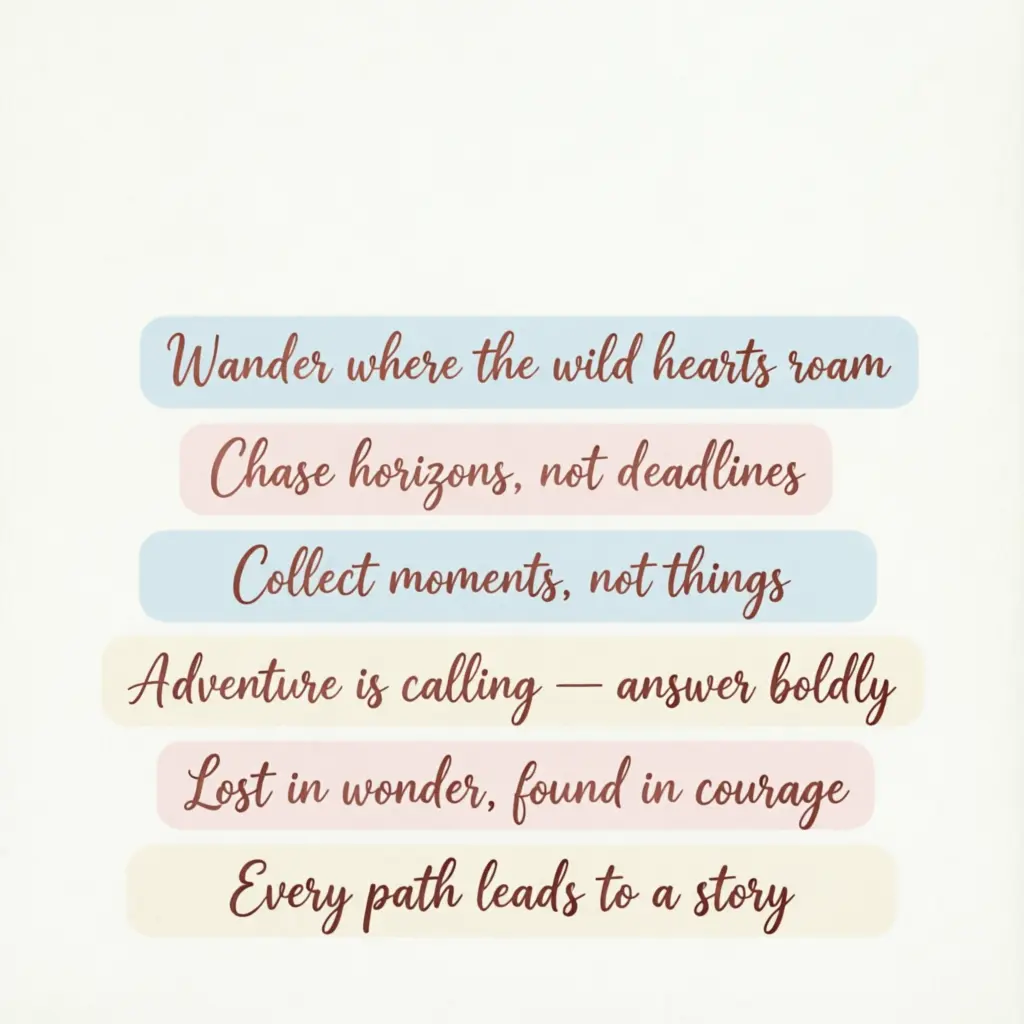 Wander where the wild hearts roam
Chase horizons, not deadlines
Collect moments, not things
Adventure is calling — answer boldly
Lost in wonder, found in courage
Every path leads to a story